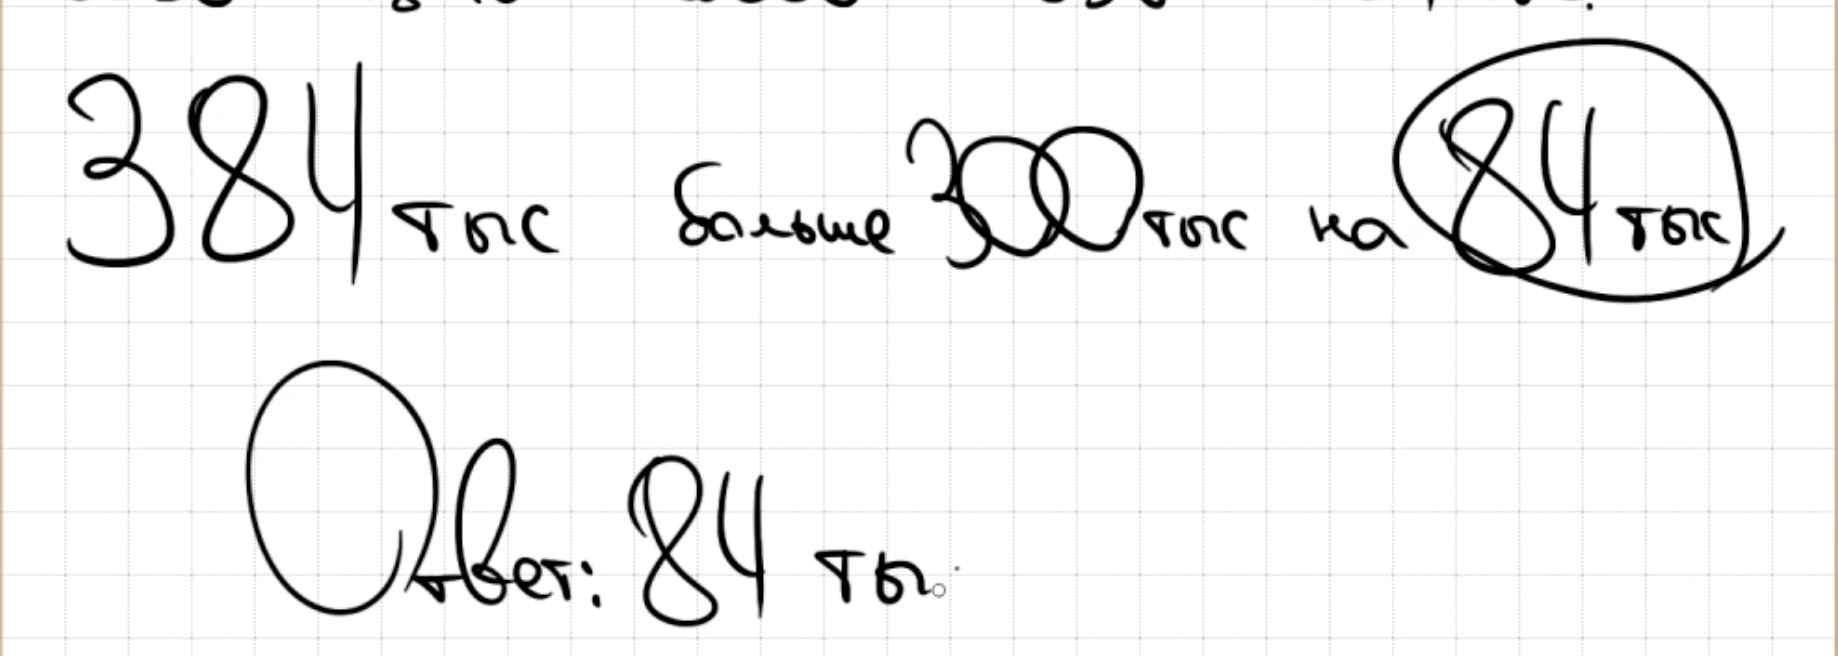 384 тыс больше 300 тыс на 84 тыс
Ответ: 84 ты